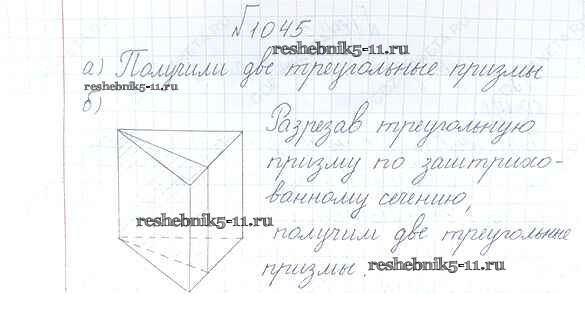 №1045
reshebnik5-11.ru
а) Получили две треугольные призмы
reshebnik5-11.ru
б)
Разрезав треугольную
призму по заштрихо-
ванному сечению,
reshebnik5-11.ru
получим две треугольные
призмы.
reshebnik5-11.ru